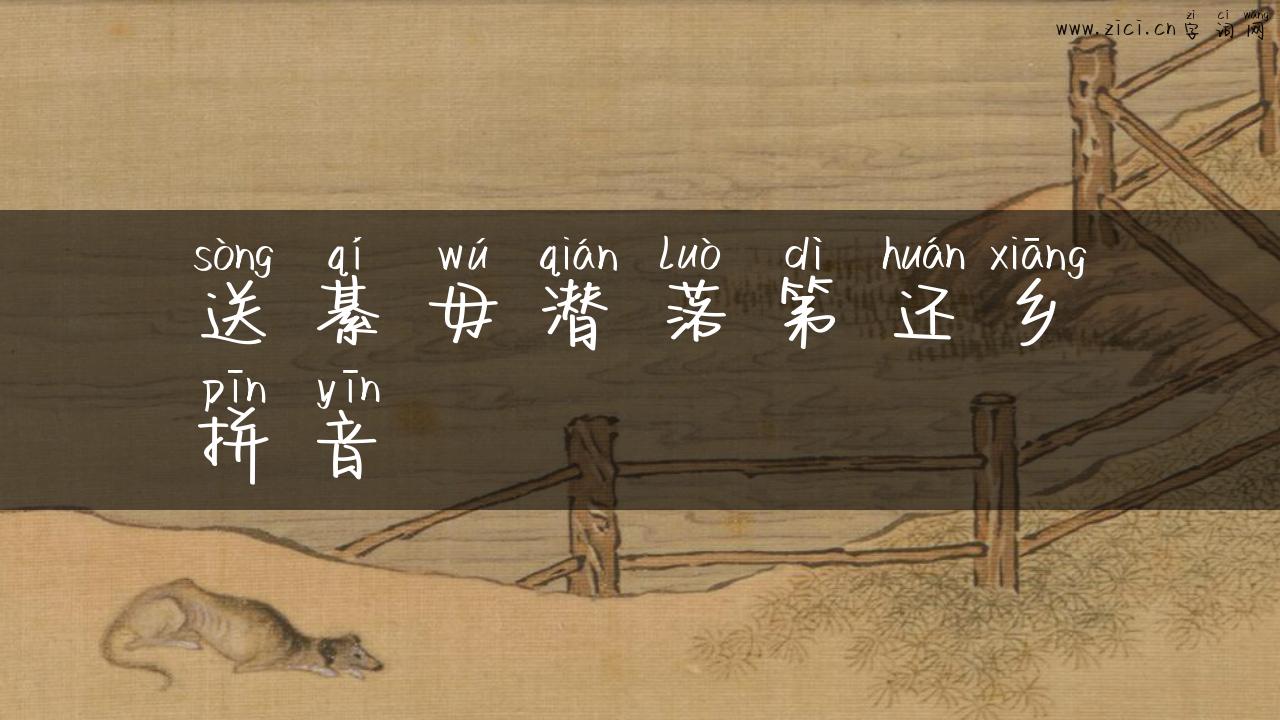 zì cí wǎng
www.zici.cn 字词网
sòng qí wú qián luò dì huán xiāng
送綦毋潜落第还乡
pīn yīn
拼音